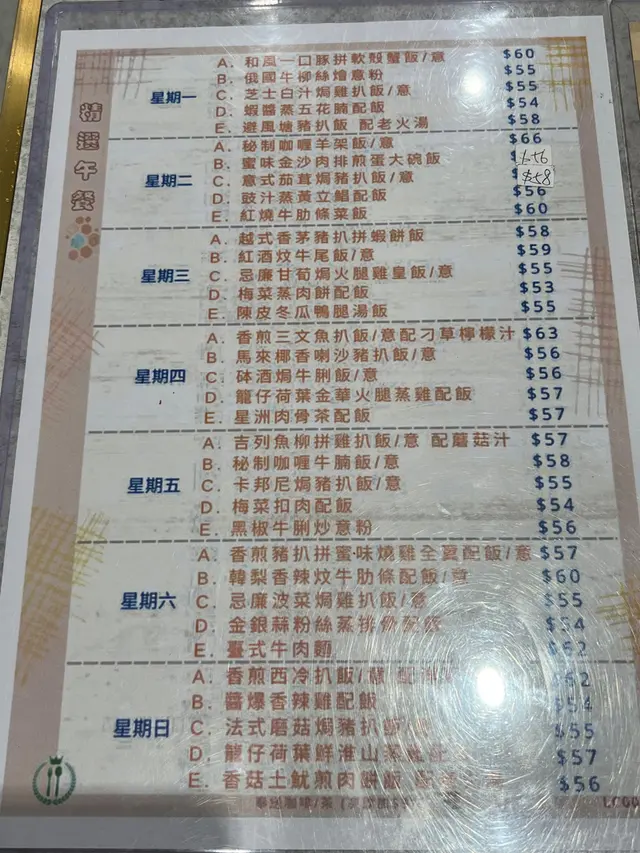 精選午餐
星期一
A. 和風一口豚拼軟殼蟹飯/意 $60
B. 俄國牛柳絲燴意粉 $55
C. 芝士白汁焗雞扒飯/意 $55
D. 蝦醬蒸五花腩配飯 $54
E. 避風塘豬扒飯 配老火湯 $58
星期二
A. 秘制咖喱羊架飯/意 $66
B. 蜜味金沙肉排煎蛋大碗飯 $56
C. 意式茄茸焗豬扒飯/意 $58
D. 豉汁蒸黃立鯧配飯 $56
E. 紅燒牛肋條菜飯 $60
星期三
A. 越式香茅豬扒拼蝦餅飯 $58
B. 紅酒炆牛尾飯/意 $59
C. 忌廉甘荀焗火腿雞皇飯/意 $55
D. 梅菜蒸肉餅配飯 $53
E. 陳皮冬瓜鴨腿湯飯 $55
星期四
A. 香煎三文魚扒飯/意配刁草檸檬汁 $63
B. 馬來椰香喇沙豬扒飯/意 $56
C. 砵酒焗牛脷飯/意 $56
D. 籠仔荷葉金華火腿蒸雞配飯 $57
E. 星洲肉骨茶配飯 $57
星期五
A. 吉列魚柳拼雞扒飯/意 配蘑菇汁 $57
B. 秘制咖喱牛腩飯/意 $58
C. 卡邦尼焗豬扒飯/意 $55
D. 梅菜扣肉配飯 $54
E. 黑椒牛脷炒意粉 $56
星期六
A. 香煎豬扒拼蜜味燒雞全翼配飯/意 $57
B. 韓梨香辣炆牛肋條配飯/意 $60
C. 忌廉波菜焗雞扒飯/意 $55
D. 金銀蒜粉絲蒸排骨配飯 $54
E. 臺式牛肉麵 $52
星期日
A. 香煎西冷扒飯/意 配 $62
B. 醬爆香辣雞配飯 $54
C. 法式磨菇焗豬扒飯 $55
D. 籠仔荷葉鮮淮山蒸雞 $57
E. 香菇土魷煎肉餅飯 $56